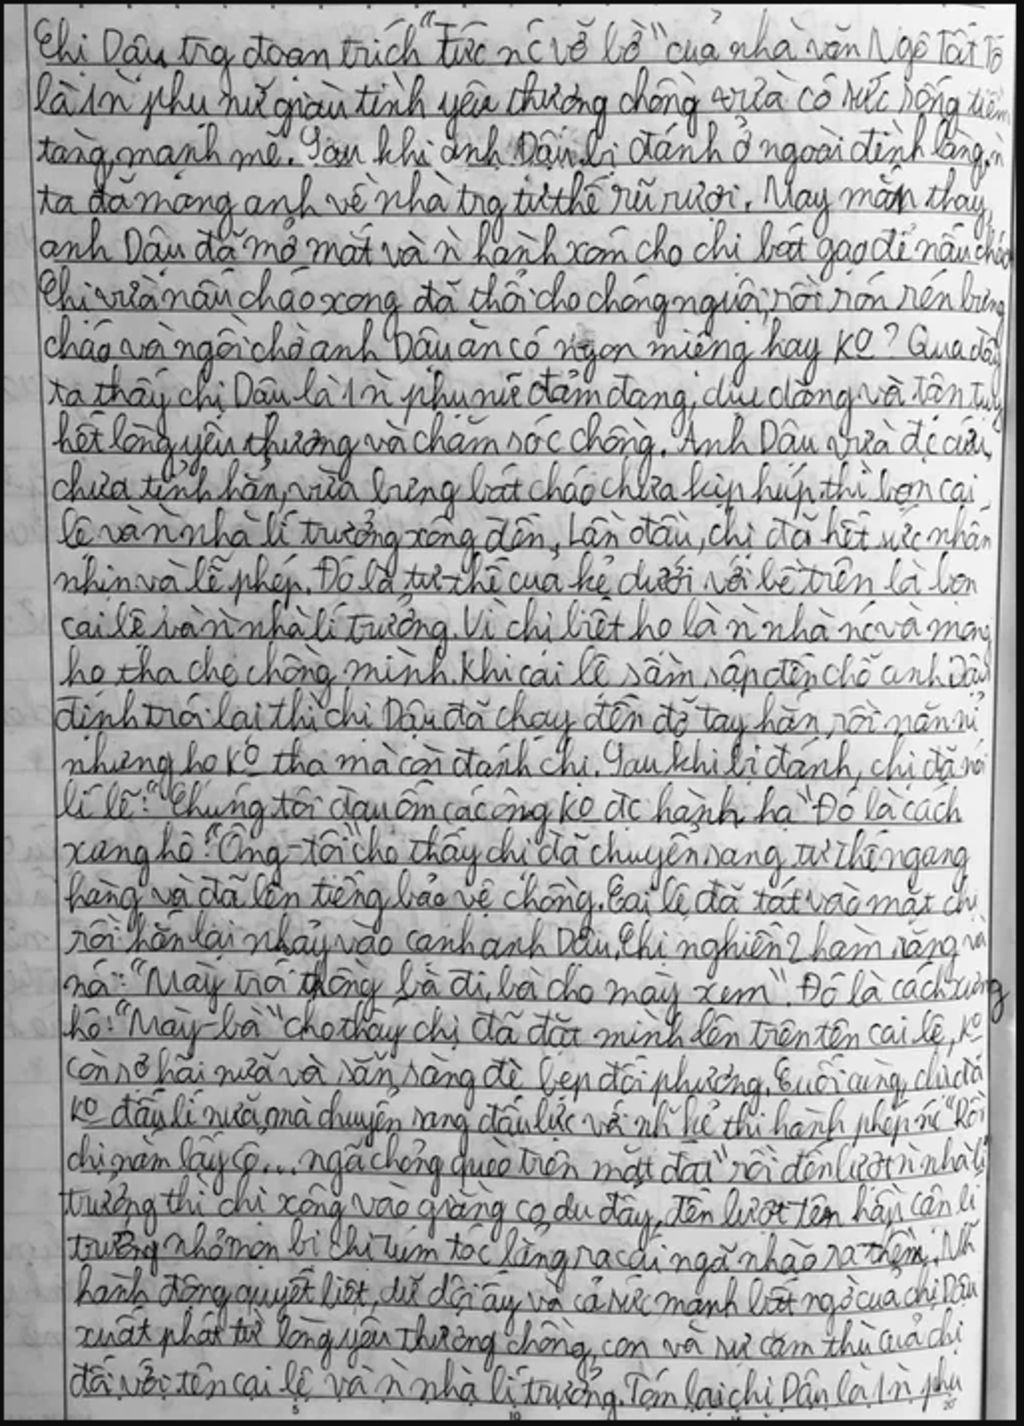 Chị Dậu trg đoạn trích "Tức nc vỡ bờ" của nhà văn Ngô Tất Tố
là 1 n` phụ nữ giàu tình yêu thương chồng vừa có sức sống tiềm
tàng, mạnh mẽ. Sau khi anh Dậu bị đánh ở ngoài đình làng, n`
ta đã mang anh về nhà trg tư thế rũ rượi. May mắn thay,
anh Dậu đã mở mắt và n` hành xóm cho chị bát gạo để nấu cháo
Chị vừa nấu cháo xong đã thổi cho chóng nguội, rồi rón rén bưng
cháo và ngồi chờ anh Dậu ăn có ngon miệng hay ko? Qua đây
ta thấy chị Dậu là 1 n` phụ nữ đảm đang, dịu dàng và tận tụy
hết lòng yêu thương và chăm sóc chồng. Anh Dậu vừa đc cứu,
chưa tỉnh hẳn, vừa bưng bát cháo chưa kịp húp thì bọn cai
lệ và n` nhà lí trưởng xông đến. Lần đầu, chị đã hết sức nhẫn
nhịn và lễ phép. Đó là tư thế của kẻ dưới với bề trên là bọn
cai lệ và n` nhà lí trưởng. Vì chị biết họ là n` nhà nc và mong
họ tha cho chồng mình. Khi cai lệ sầm sập đến chỗ anh Dậu
định trói lại thì chị Dậu đã chạy đến đỡ tay hắn, rồi năn nỉ
nhưng họ ko tha mà còn đánh chị. Sau khi bị đánh, chị đã nói
lí lẽ: "Chúng tôi đau ốm các ông ko đc hành hạ" Đó là cách
xưng hô: "Ông-tôi" cho thấy chị đã chuyển sang tư thế ngang
hàng và đã lên tiếng bảo vệ chồng. Cai lệ đã tát vào mặt chị
rồi hắn lại nhảy vào cạnh anh Dậu. Chị nghiến 2 hàm răng và
nói: "Mày trói chồng bà đi, bà cho mày xem". Đó là cách xưng
hô: "Mày-bà" cho thấy chị đã đặt mình lên trên tên cai lệ, ko
còn sợ hãi nữa và sẵn sàng đè bẹp đối phương. Cuối cùng, chị đã
ko đấu lí nữa, mà chuyển sang đấu lực với nh~ kẻ thi hành phép nc "Rồi
chị nắm lấy cổ... ngã chỏng quèo trên mặt đất" rồi đến lượt n` nhà lí
trưởng thì chị xông vào giằng co, du đẩy, đến lượt tên hầu cận lí
trưởng nhỏ mọn bị chị túm tóc lẳng ra cái ngã nhào ra thềm. Nh~
hành động quyết liệt, dữ dội ấy và cả sức mạnh bất ngờ của chị Dậu
xuất phát từ lòng yêu thương chồng, con và sự căm thù của chị
đối với tên cai lệ và n` nhà lí trưởng. Tóm lại chị Dậu là 1 n` phụ